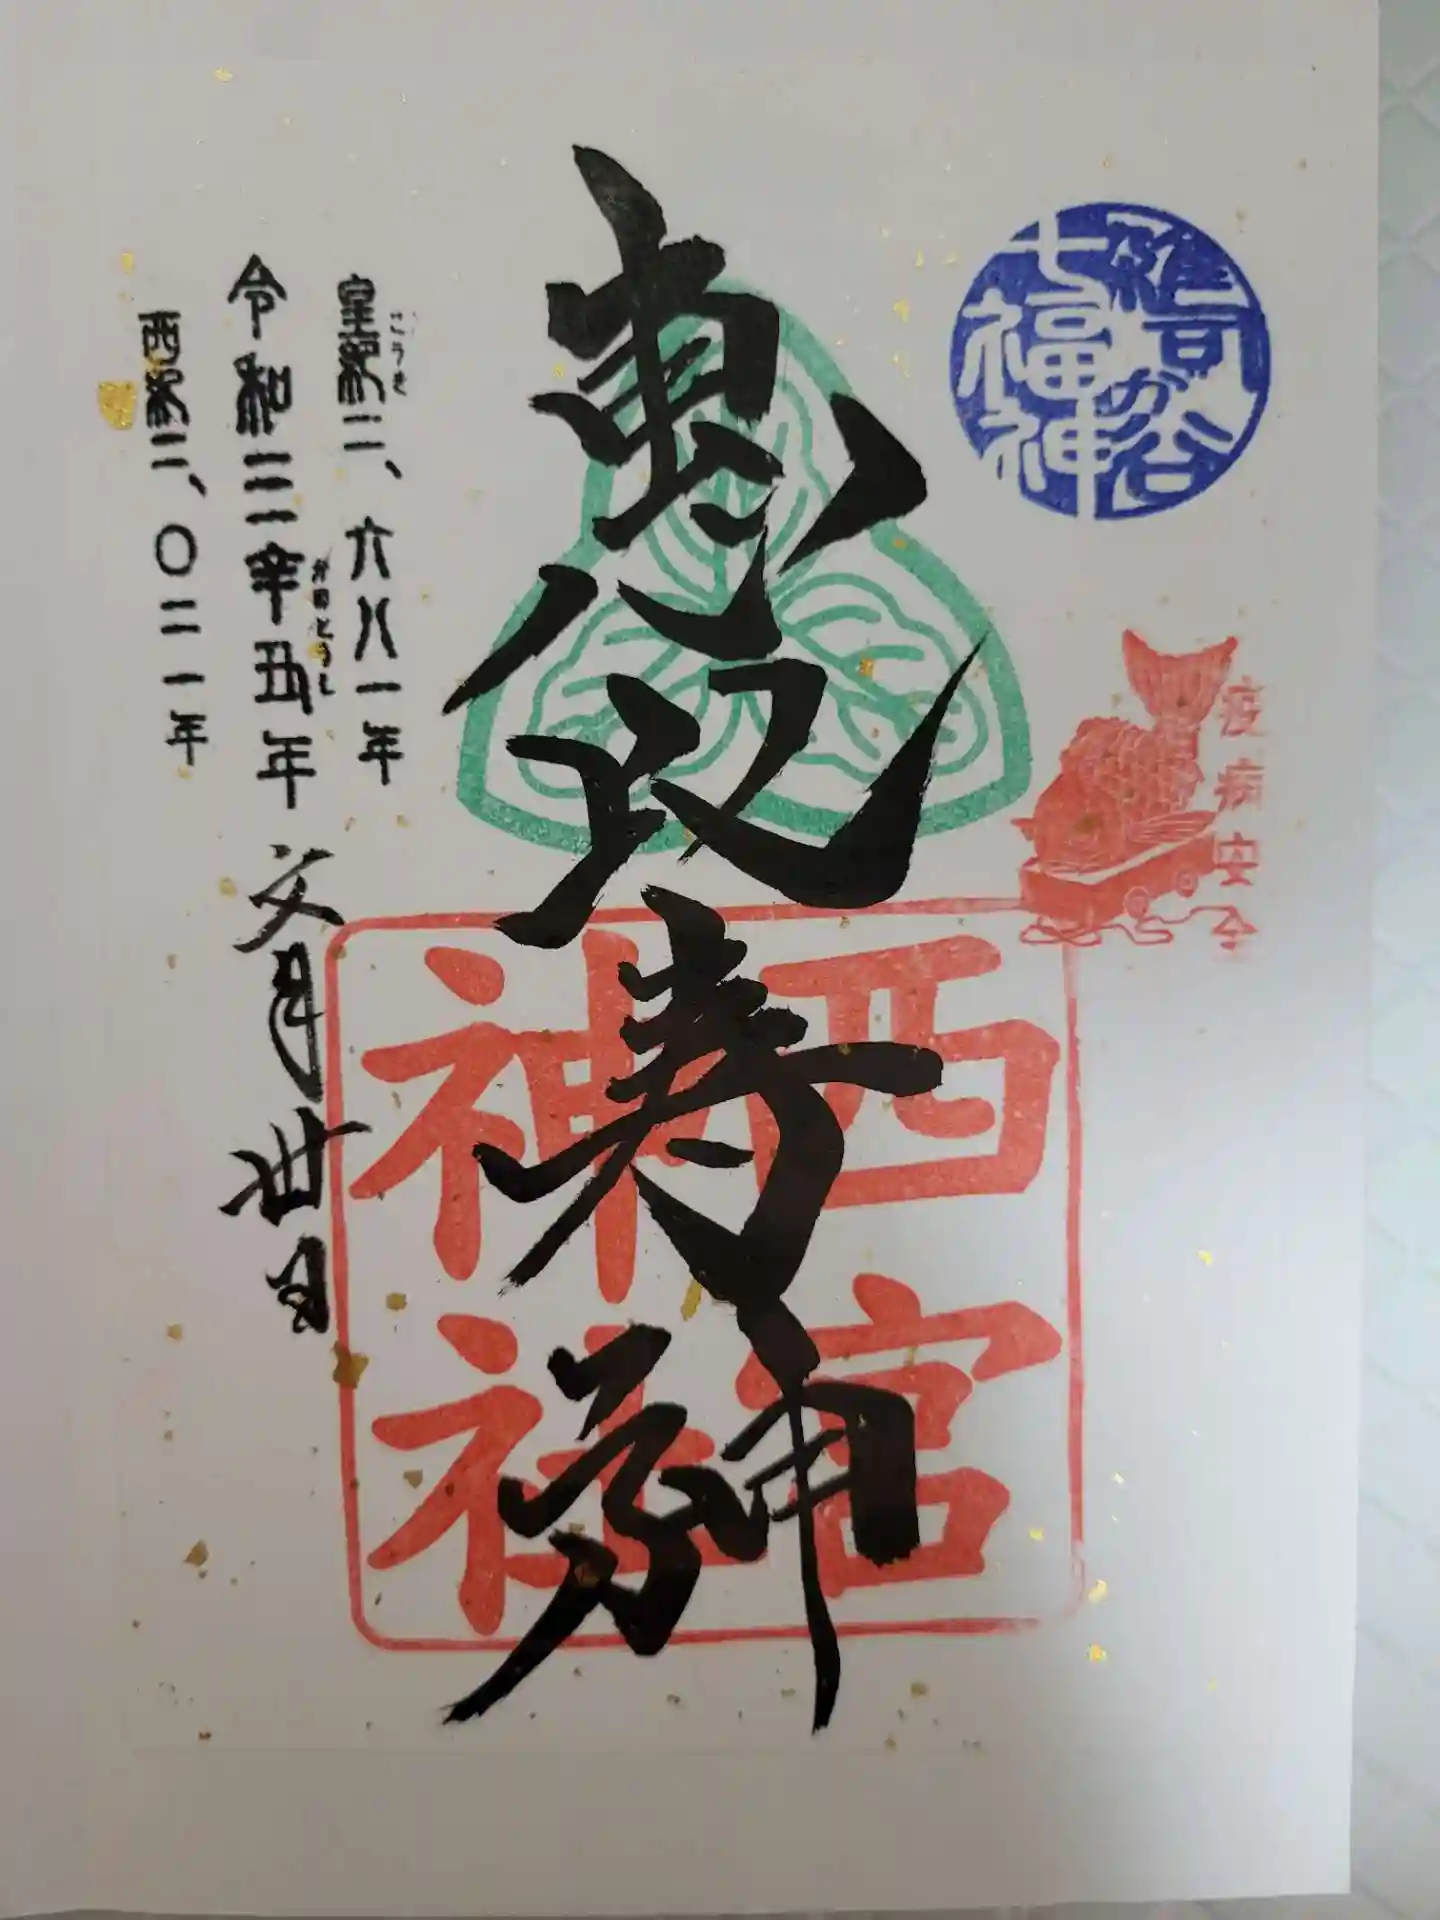 雑司が谷
七福神
疫病安全
恵比寿神
西宮
神社
こうき
皇紀二、六八一年
かのとうし
令和三辛丑年 文月丗日
西紀二、〇二一年